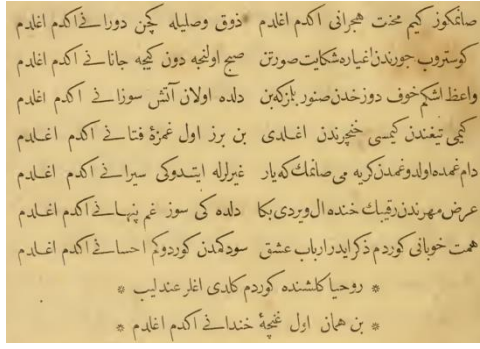 صانمكوز كيم محنت هجرانی اكدم اغلدم ذوق وصليله كچن دورانے اكدم اغلدم
كوستروب جورندن اغياره شكايت صورتن صبح اولنجه دون كيجه جانانے اكدم اغلدم
واعظ اشكم خوف دوزخدن صنور يازكه بن دلده اولان آتش سوزانے اكدم اغلدم
كمی تيغندن كيمسی خنچرندن اغلدی بن برز اول غمزهٔ فتانے اكدم اغلدم
دام غمده اولدوغمدن كريه می صانمك كه يار غيرلرله ايتدوكی سيرانے اكدم اغلدم
عرض مهرندن رقيبك خنده ال ويردی بكا دلده كی سوز غم پنهانے اكدم اغلدم
همت خوبانی كوردم ذكر ايدر ارباب عشق سودكمدن كوردوكم احسانے اكدم اغلدم
* روحيا كلشنده كوردم كلدی اغلر عندليب *
* بن همان اول غنچهٔ خندانے اكدم اغلدم *